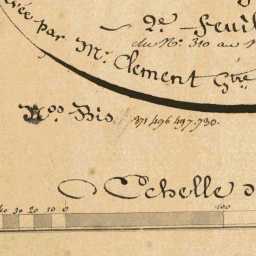 2e. Feuil
du No. 310 au N
ée par Mr. Clement Gtre
Nos Bis 371 496 497. 730.
Echelle d
40 30 20 10 0 100